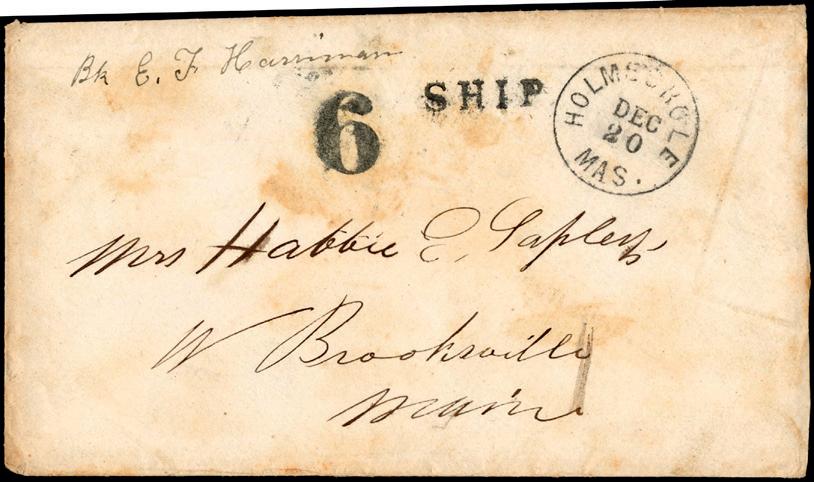 Bk E. F Harriman
6
SHIP
HOLMES HOLE
DEC
20
MAS.
Mrs Habbie E. Tapley
W Brooksville
Maine